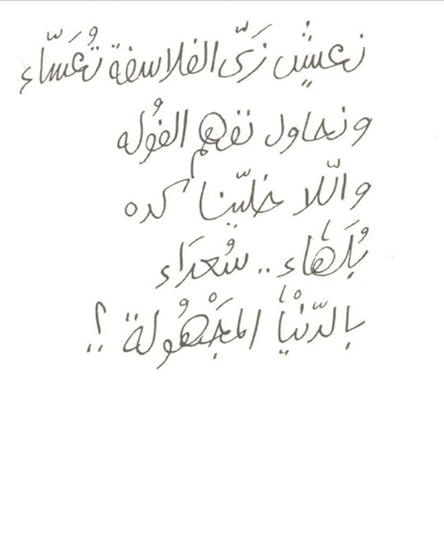 نعيش زَىّ الفلاسفة تُعَسّاء
ونحاول نفهم الفُوله
واللّا خليّنا كده
بُلَهَاء.. سُعدَاء
بالدّنْيا المجَْهُولة ؟!